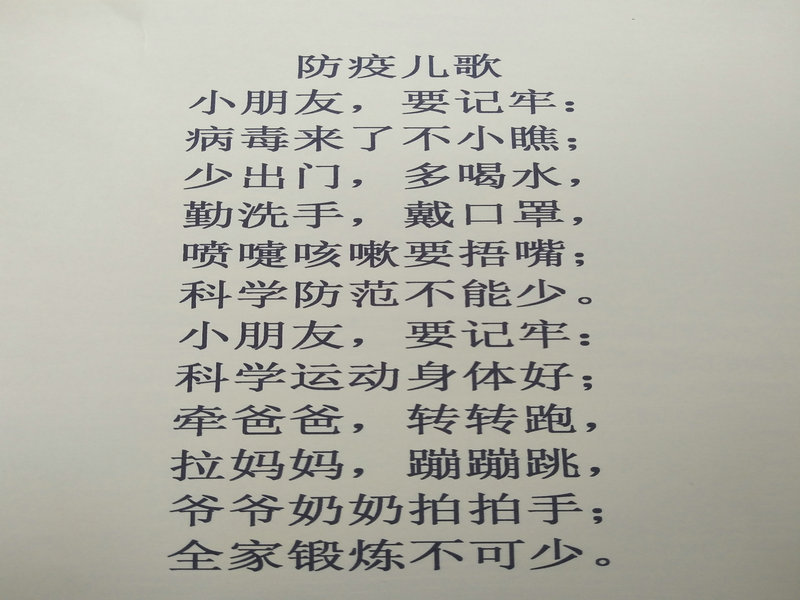 防疫儿歌
小朋友，要记牢：
病毒来了不小瞧；
少出门，多喝水，
勤洗手，戴口罩，
喷嚏咳嗽要捂嘴；
科学防范不能少。
小朋友，要记牢：
科学运动身体好；
牵爸爸，转转跑，
拉妈妈，蹦蹦跳，
爷爷奶奶拍拍手；
全家锻炼不可少。